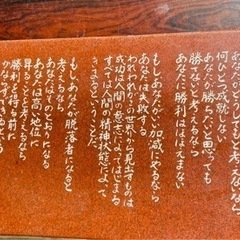 何ひとつ成就しない
あなたが勝ちたいと思っても
勝てないと考えるなら
あなたに勝利はほほえまない
もしあなたがいい加減にやるなら
あなたは失敗する
われわれがこの世界から見出すものは
成功は人間の意志によってはじまる
すべては人間の精神状態によって
きまるということだ
もしあなたが脱落者になると
考えるなら
あなたはそのとおりになる
あなたは高い地位に
昇ることを考えるなら
勝利を得る前に